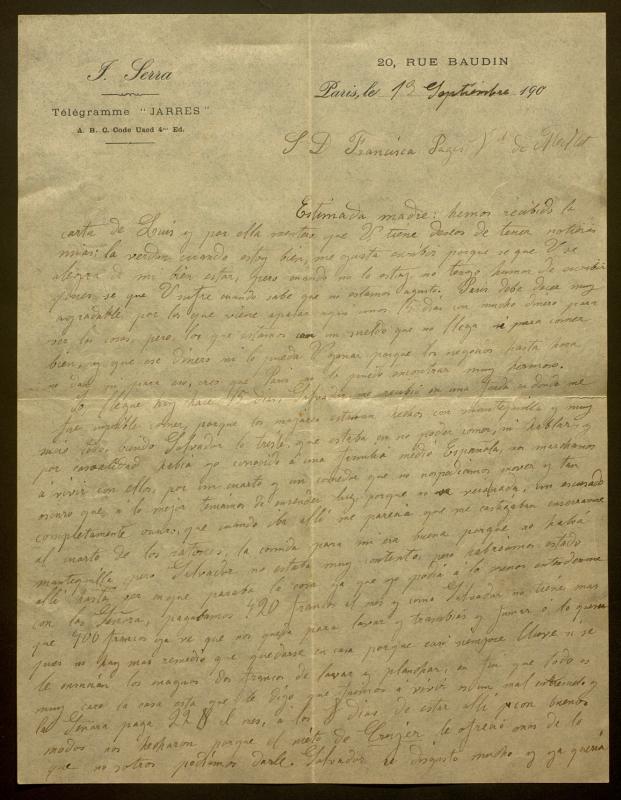 J. Serra
Télégramme "JARRES"
A. B. C. Code Used 4th Ed.
20, RUE BAUDIN
Paris, le 13 Septiembre 190
S D Francisca Pagés Vda de
Estimada madre: hemos recibido la
carta de Luis y por ella veo que V tiene deseos de tener noticias
mias: la verdad cuando estoy bien, me gusta escribir porque se que V se
alegra de mi bien estar, pero cuando no lo estoy no tengo humor de escribir
pues se que V sufre cuando sabe que no estamos a gusto. Paris debe ser muy
agradable por los que vienen a pasar aqui unos 15 dias con mucho dinero para
ver las cosas, pero los que estamos con un sueldo que no llega ni para comer
bien, y que ese dinero no lo pueda V ganar porque los negocios hasta hora
no dan ni para eso, creo que Paris no lo puedo encontrar muy hermoso.
Yo llegué hoy hace 15 dias, Salvador me recibió en una fonda en donde me
fue imposible comer, porque los manjares estaban hechos con mantequilla y muy
malo todo, viendo Salvador lo triste que estaba en no poder comer, ni hablar y
por casualidad habia yo conocido á una familia medio Española, nos marchamos
á vivir con ellos, por un cuarto y un comedor que no nos podiamos mover y tan
oscuro que á lo mejor teniamos de encender luz porque no se veia, un escusado
completamente oscuro, que cuando iba allí me parecia que me castigaban encerrarme
al cuarto de los ratones, la comida para mi era buena porque no habia
mantequilla pero Salvador no estaba muy contento, pero habriamos estado
allí hasta ver en que paraba la cosa ya que yo podia á lo menos entenderme
con la Señora, pagabamos 420 francos al mes y como Salvador no tiene mas
que 400 francos ya ve que nos queda para lavar y tranvias y fumar ó lo que sea
pues no hay mas remedio que quedarse en casa porque casi siempre llueve si se
le ensucian los enaguas dos francos de lavar y planchar, en fin que todo es
muy caro la casa esta que le digo que fuimos á vivir es un mal entresuelo y
la Señora paga 22 $ al mes, á los 8 dias de estar allí y con buenos
modos nos hecharon porque el nieto de le ofreció mas de lo
que nosotros podiamos darle. Salvador se disgustó mucho y ya queria